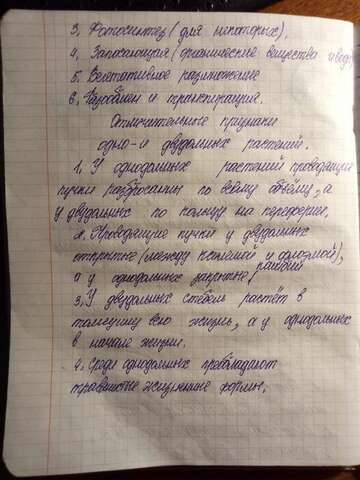 3. Фотосинтез (для некоторых).
4. Запасающая (органические вещества и вода)
5. Вегетативное размножение
6. Газообмен и транспирация.
Отличительные признаки
одно- и двудольных растений.
1. У однодольных растений проводящие
пучки разбросаны по всему объёму, а
у двудольных по кольцу на периферии.
2. Проводящие пучки у двудольных
открытые (между ксилемой и флоэмой),
а у однодольных закрытые
3. У двудольных стебель растёт в
толщину всю жизнь, а у однодольных
в начале жизни.
4. Среди однодольных преобладают
травянистые жизненные формы.